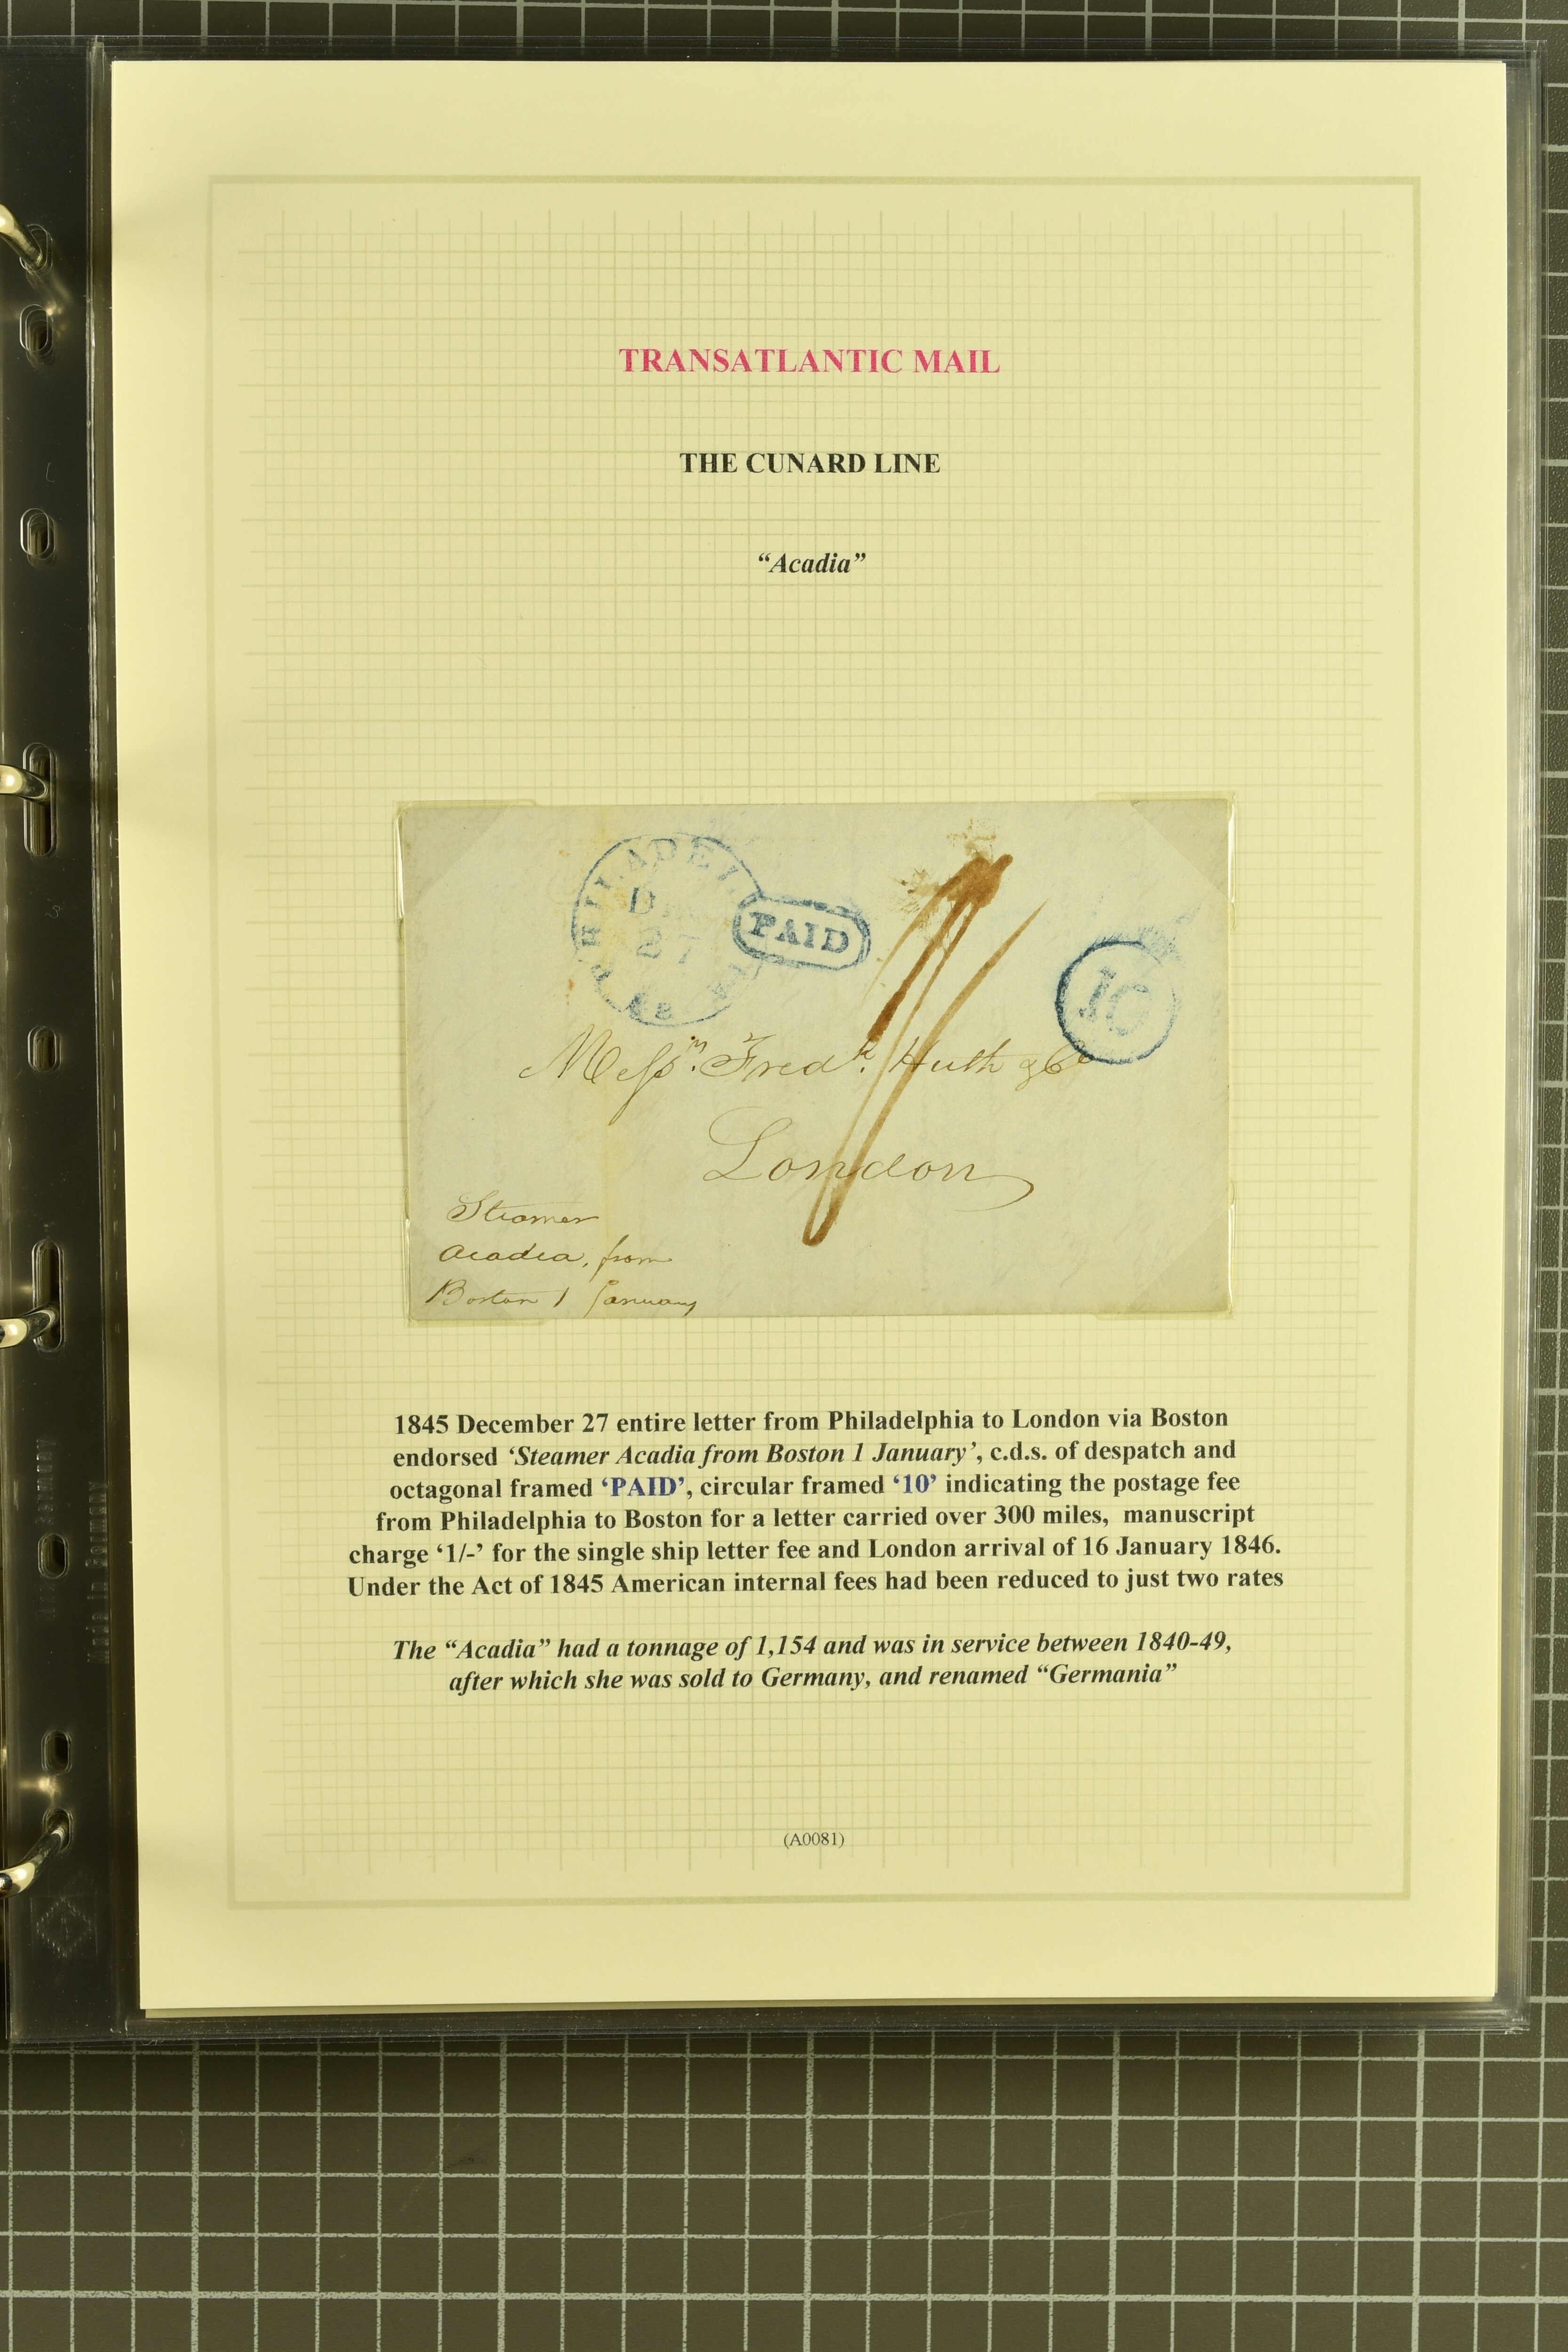 TRANSATLANTIC MAIL
THE CUNARD LINE
“Acadia”
PHILADEL
D
27
PAID
10
Messrs. Fredk. Huth & Co
London
Steamer
Acadia, from
Boston 1 January
1845 December 27 entire letter from Philadelphia to London via Boston
endorsed ‘Steamer Acadia from Boston 1 January’, c.d.s. of despatch and
octagonal framed ‘PAID’, circular framed ‘10’ indicating the postage fee
from Philadelphia to Boston for a letter carried over 300 miles, manuscript
charge ‘1/-’ for the single ship letter fee and London arrival of 16 January 1846.
Under the Act of 1845 American internal fees had been reduced to just two rates
The “Acadia” had a tonnage of 1,154 and was in service between 1840-49,
after which she was sold to Germany, and renamed “Germania”
(A0081)